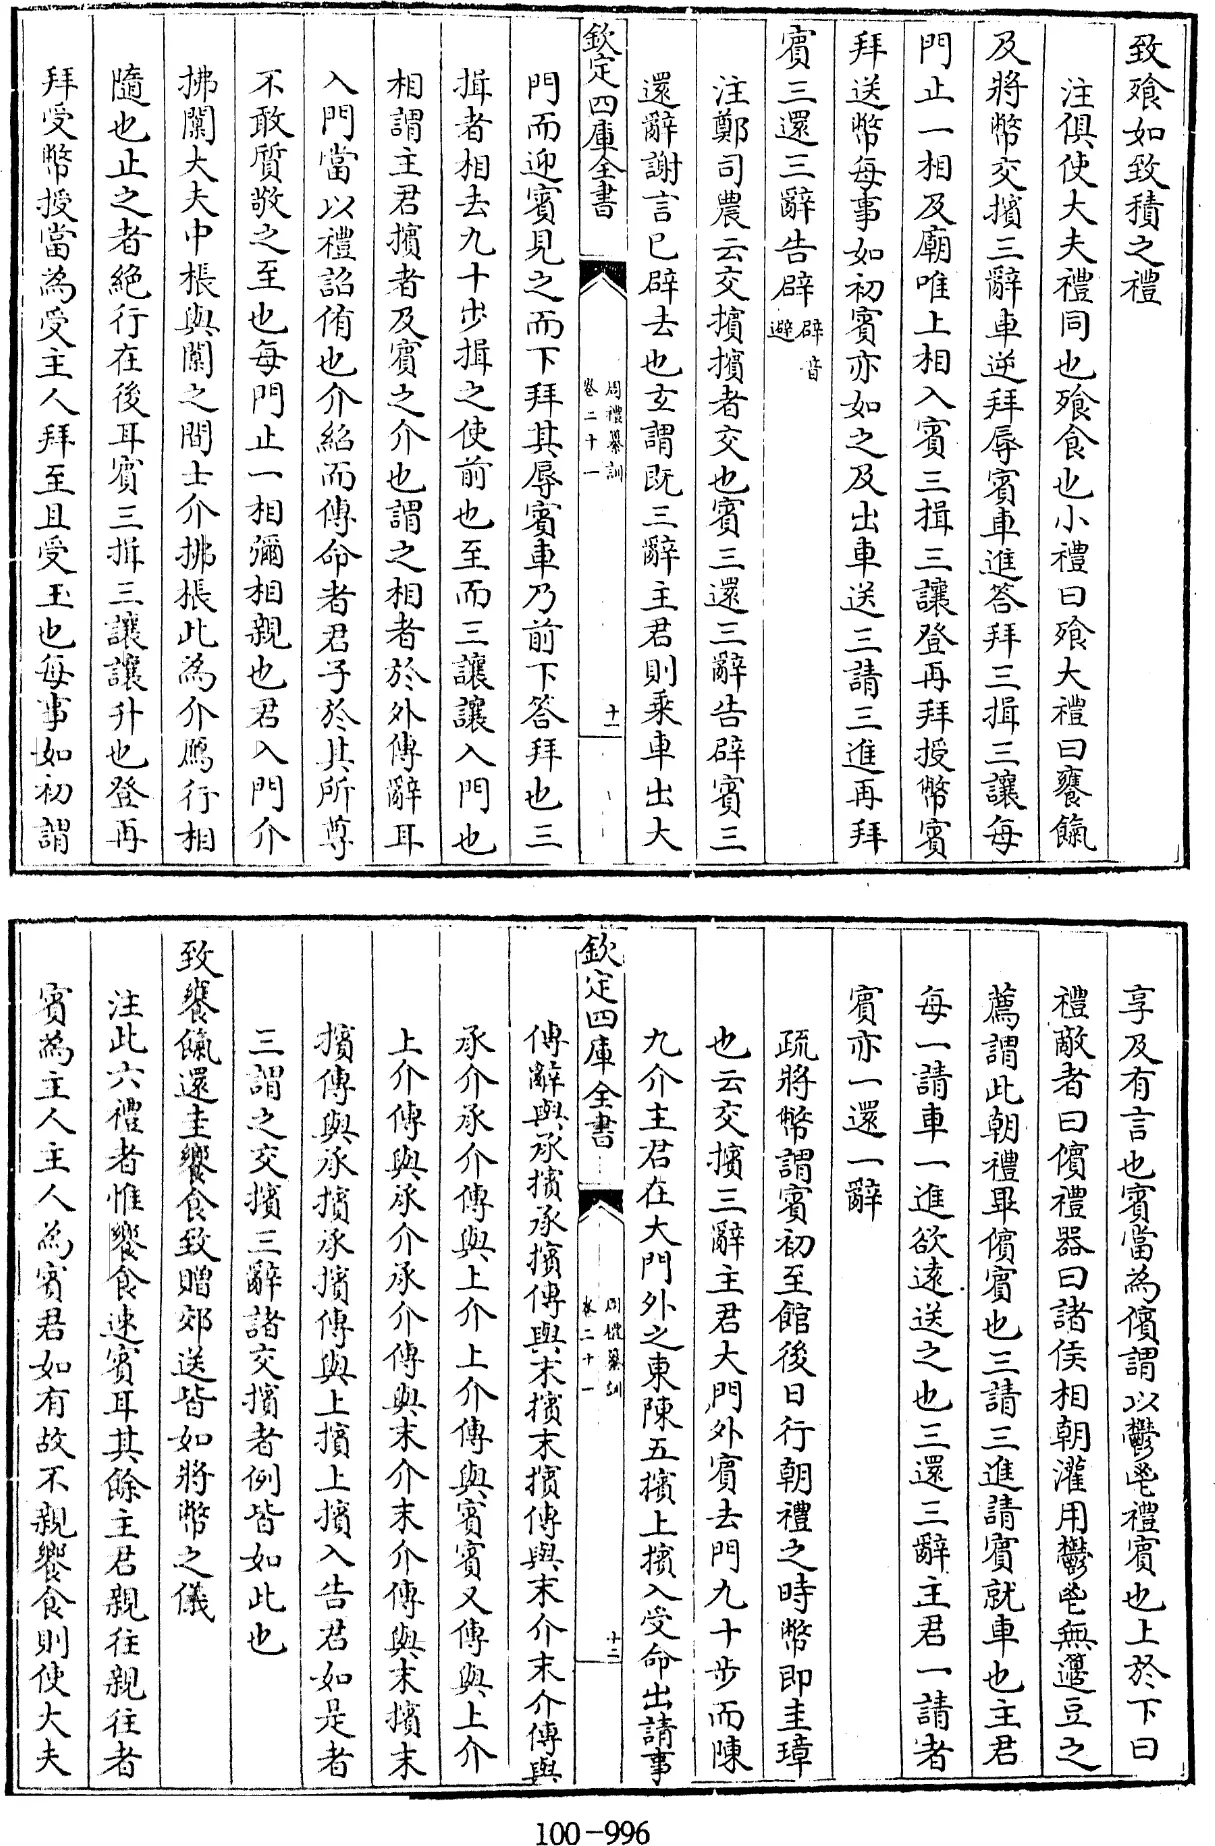 致飱如致積之禮
注俱使大夫禮同也飱食也小禮曰飱大禮曰饔餼
及將幣交擯三辭車逆拜辱賓車進答拜三揖三讓每
門止一相及廟唯上相入賓三揖三讓登再拜授幣賓
拜送幣每事如初賓亦如之及出車送三請三進再拜
賓三還三辭告辟辟音避
注鄭司農云交擯擯者交也賓三還三辭告辟賓三
還辭謝言已辟去也玄謂既三辭主君則乗車出大
欽定四庫全書 周禮纂訓 卷二十一 十一
門而迎賓見之而下拜其辱賓車乃前下答拜也三
揖者相去九十步揖之使前也至而三讓讓入門也
相謂主君擯者及賓之介也謂之相者於外傳辭耳
入門當以禮詔侑也介紹而傳命者君子於其所尊
不敢質敬之至也每門止一相彌相親也君入門介
拂闑大夫中棖與闑之間士介拂棖此為介鴈行相
隨也止之者絶行在後耳賓三揖三讓讓升也登再
拜受幣授當為受主人拜至且受玉也每事如初謂
享及有言也賓當為儐謂以鬱鬯禮賓也上於下曰
禮敵者曰儐禮器曰諸侯相朝灌用鬱鬯無籩豆之
薦謂此朝禮畢儐賓也三請三進請賓就車也主君
每一請車一進欲逺送之也三還三辭主君一請者
賓亦一還一辭
疏將幣謂賓初至館後日行朝禮之時幣即圭璋
也云交擯三辭主君大門外賓去門九十步而陳
九介主君在大門外之東陳五擯上擯入受命出請事
欽定四庫全書 周禮纂訓 卷二十一 十二
傳辭與承擯承擯傳與末擯末擯傳與末介末介傳與
承介承介傳與上介上介傳與賓賓又傳與上介
上介傳與承介承介傳與末介末介傳與末擯末
擯傳與承擯承擯傳與上擯上擯入告君如是者
三謂之交擯三辭諸交擯者例皆如此也
致饔餼還圭饗食致贈郊送皆如將幣之儀
注此六禮者惟饗食速賓耳其餘主君親往親往者
賓為主人主人為賓君如有故不親饗食則使大夫
100-996